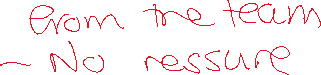 from the team
- No ressure